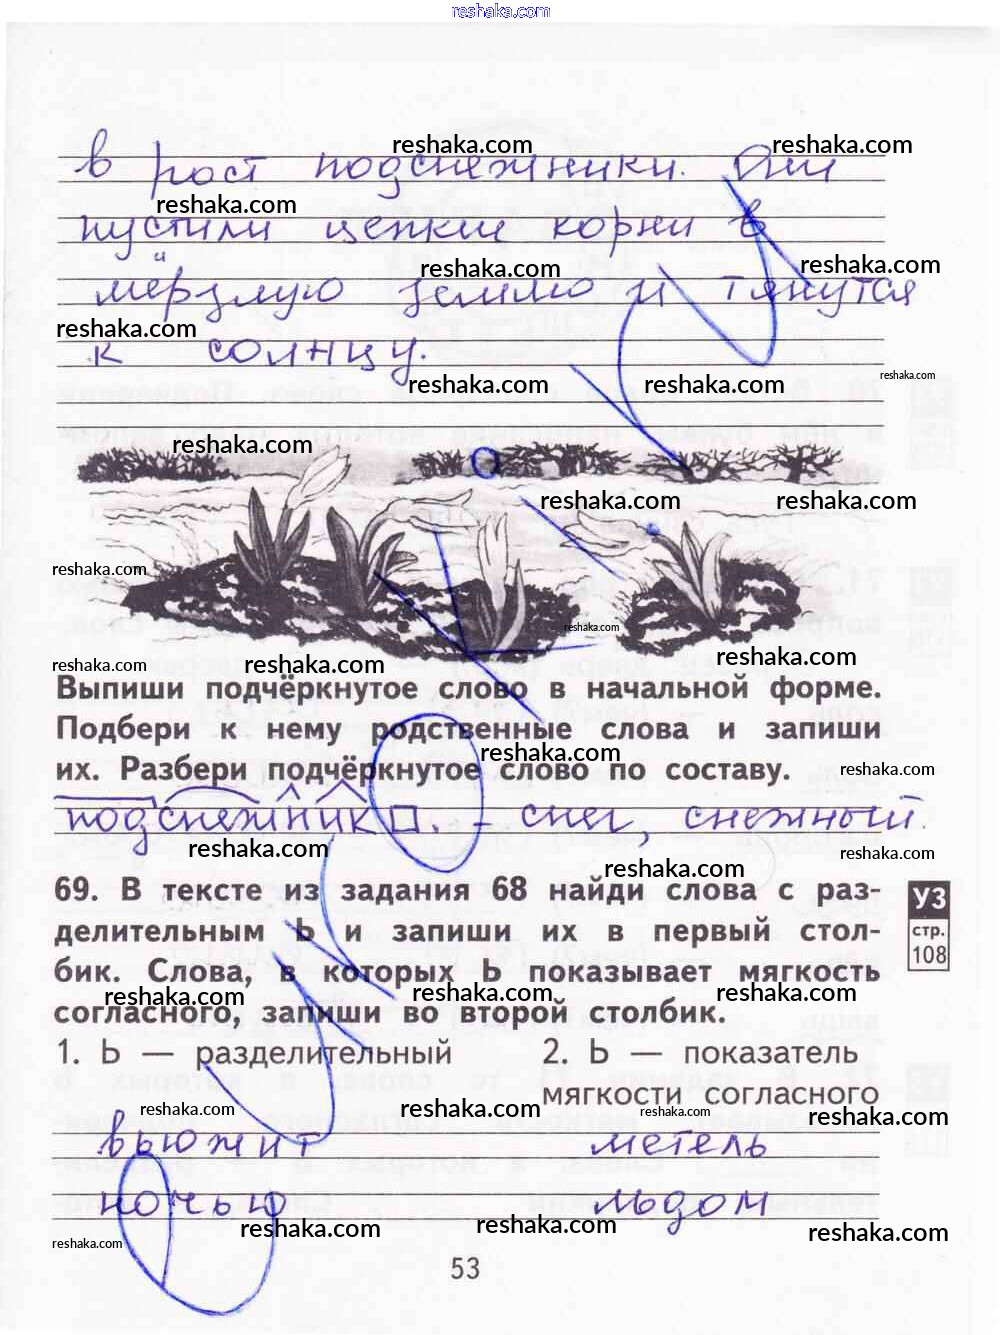 reshaka.com
в рост подснежники. Они
пустили цепкие корни в
мёрзлую землю и тянутся
к солнцу.
Выпиши подчёркнутое слово в начальной форме.
Подбери к нему родственные слова и запиши
их. Разбери подчёркнутое слово по составу.
подснежник. - снег, снежный.
69. В тексте из задания 68 найди слова с раз-
делительным Ь и запиши их в первый стол-
бик. Слова, в которых Ь показывает мягкость
согласного, запиши во второй столбик.
УЗ
стр.
108
1. Ь — разделительный
2. Ь — показатель
мягкости согласного
вьюжит
метель
ночью
льдом
53